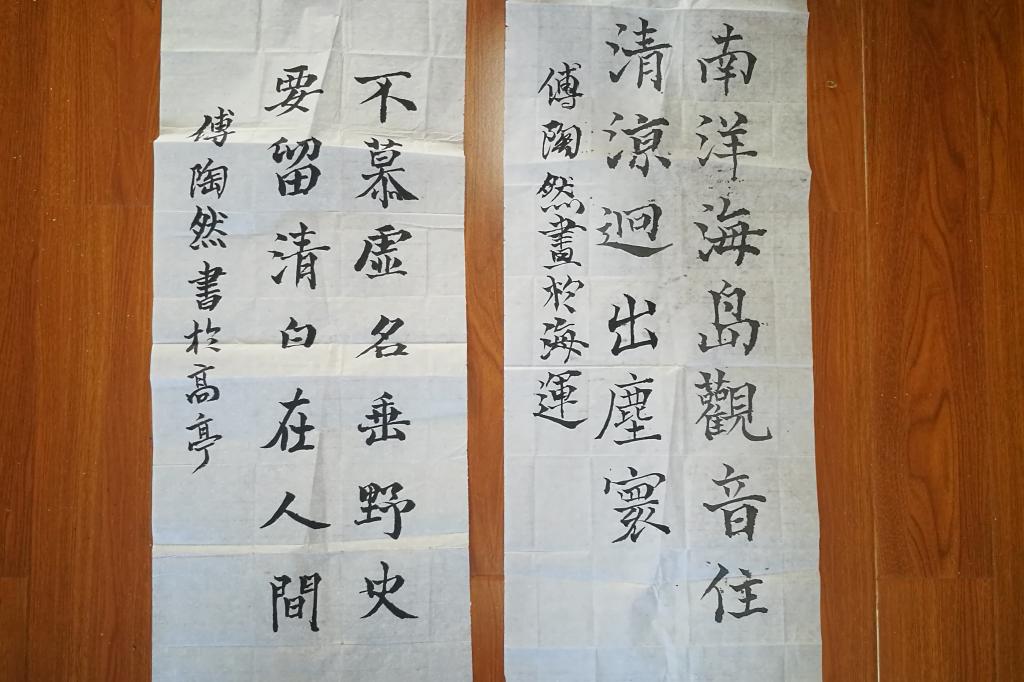 南洋海島觀音住
清涼迥出塵寰
傅陶然畫於海運
不慕虛名垂野史
要留清白在人間
傅陶然書於高亭